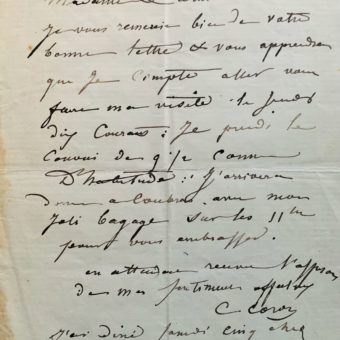 Je vous remercie bien de votre
bonne lettre & vous apprendre
que je compte aller vous
faire ma visite le jeudi
dix Courant : Je prends le
Convoi de comme
D'habitude : J'arriverai
donc a avec mon
Joli bagage sur les 11 h
pour vous embrasser.
en attendant recevez
de mes sentiments
C. Corot
J'ai diné samedi cinq chez